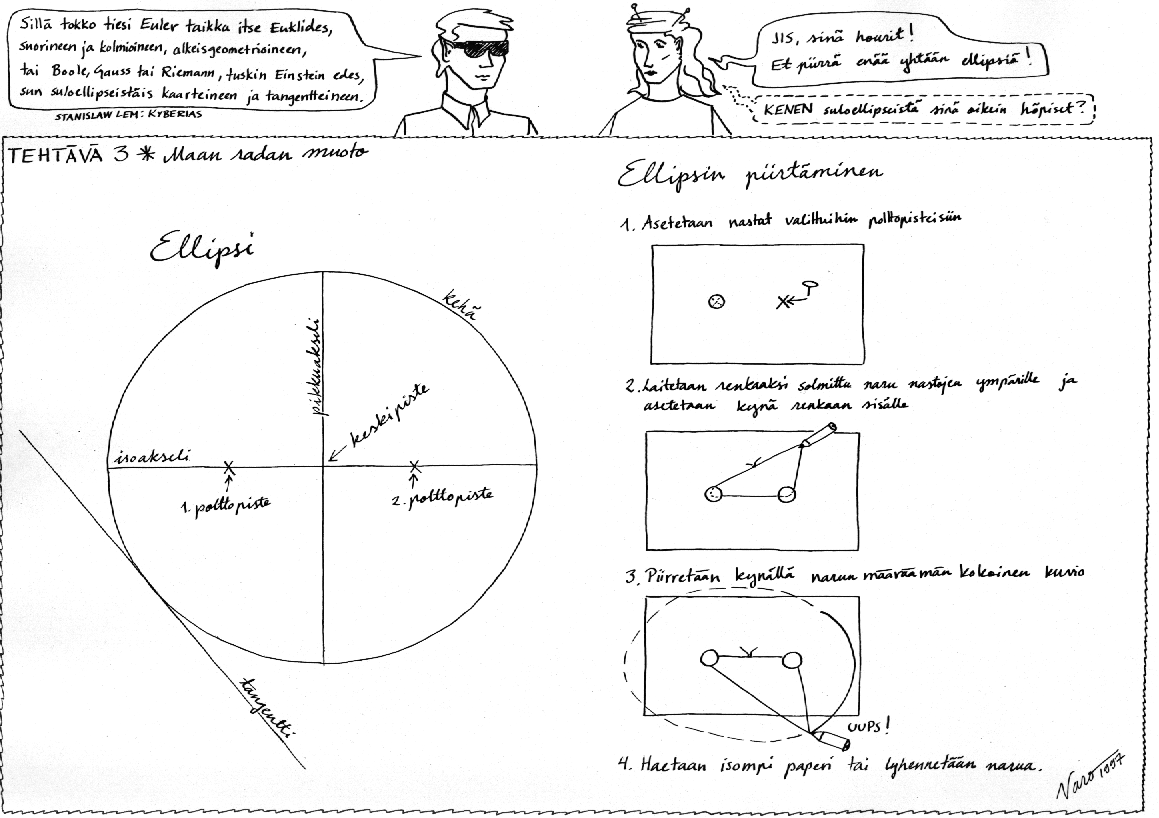 Sillä tokko tiesi Euler taikka itse Euklides,
suorineen ja kolmioineen, alkeisgeometrioineen,
tai Boole, Gauss tai Riemann, tuskin Einstein edes,
sun suloellipseistäis kaarteineen ja tangentteineen.
STANISLAW LEM: KYBERIAS
JIS, sinä hourit!
Et piirrä enää yhtään ellipsiä!
KENEN suloellipseistä sinä oikein höpiset?
TEHTÄVÄ 3 * Maan radan muoto
Ellipsi
kehä
pikkuakseli
keskipiste
isoakseli
1. polttopiste
2. polttopiste
tangentti
Ellipsin piirtäminen
1. Asetetaan nastat valittuihin polttopisteisiin
2. Laitetaan renkaaksi solmittu naru nastojen ympärille ja
asetetaan kynä renkaan sisälle
3. Piirretään kynällä narun määräämän kokoinen kuvio
UUPS!
4. Haetaan isompi paperi tai lyhennetään narua.
Varo